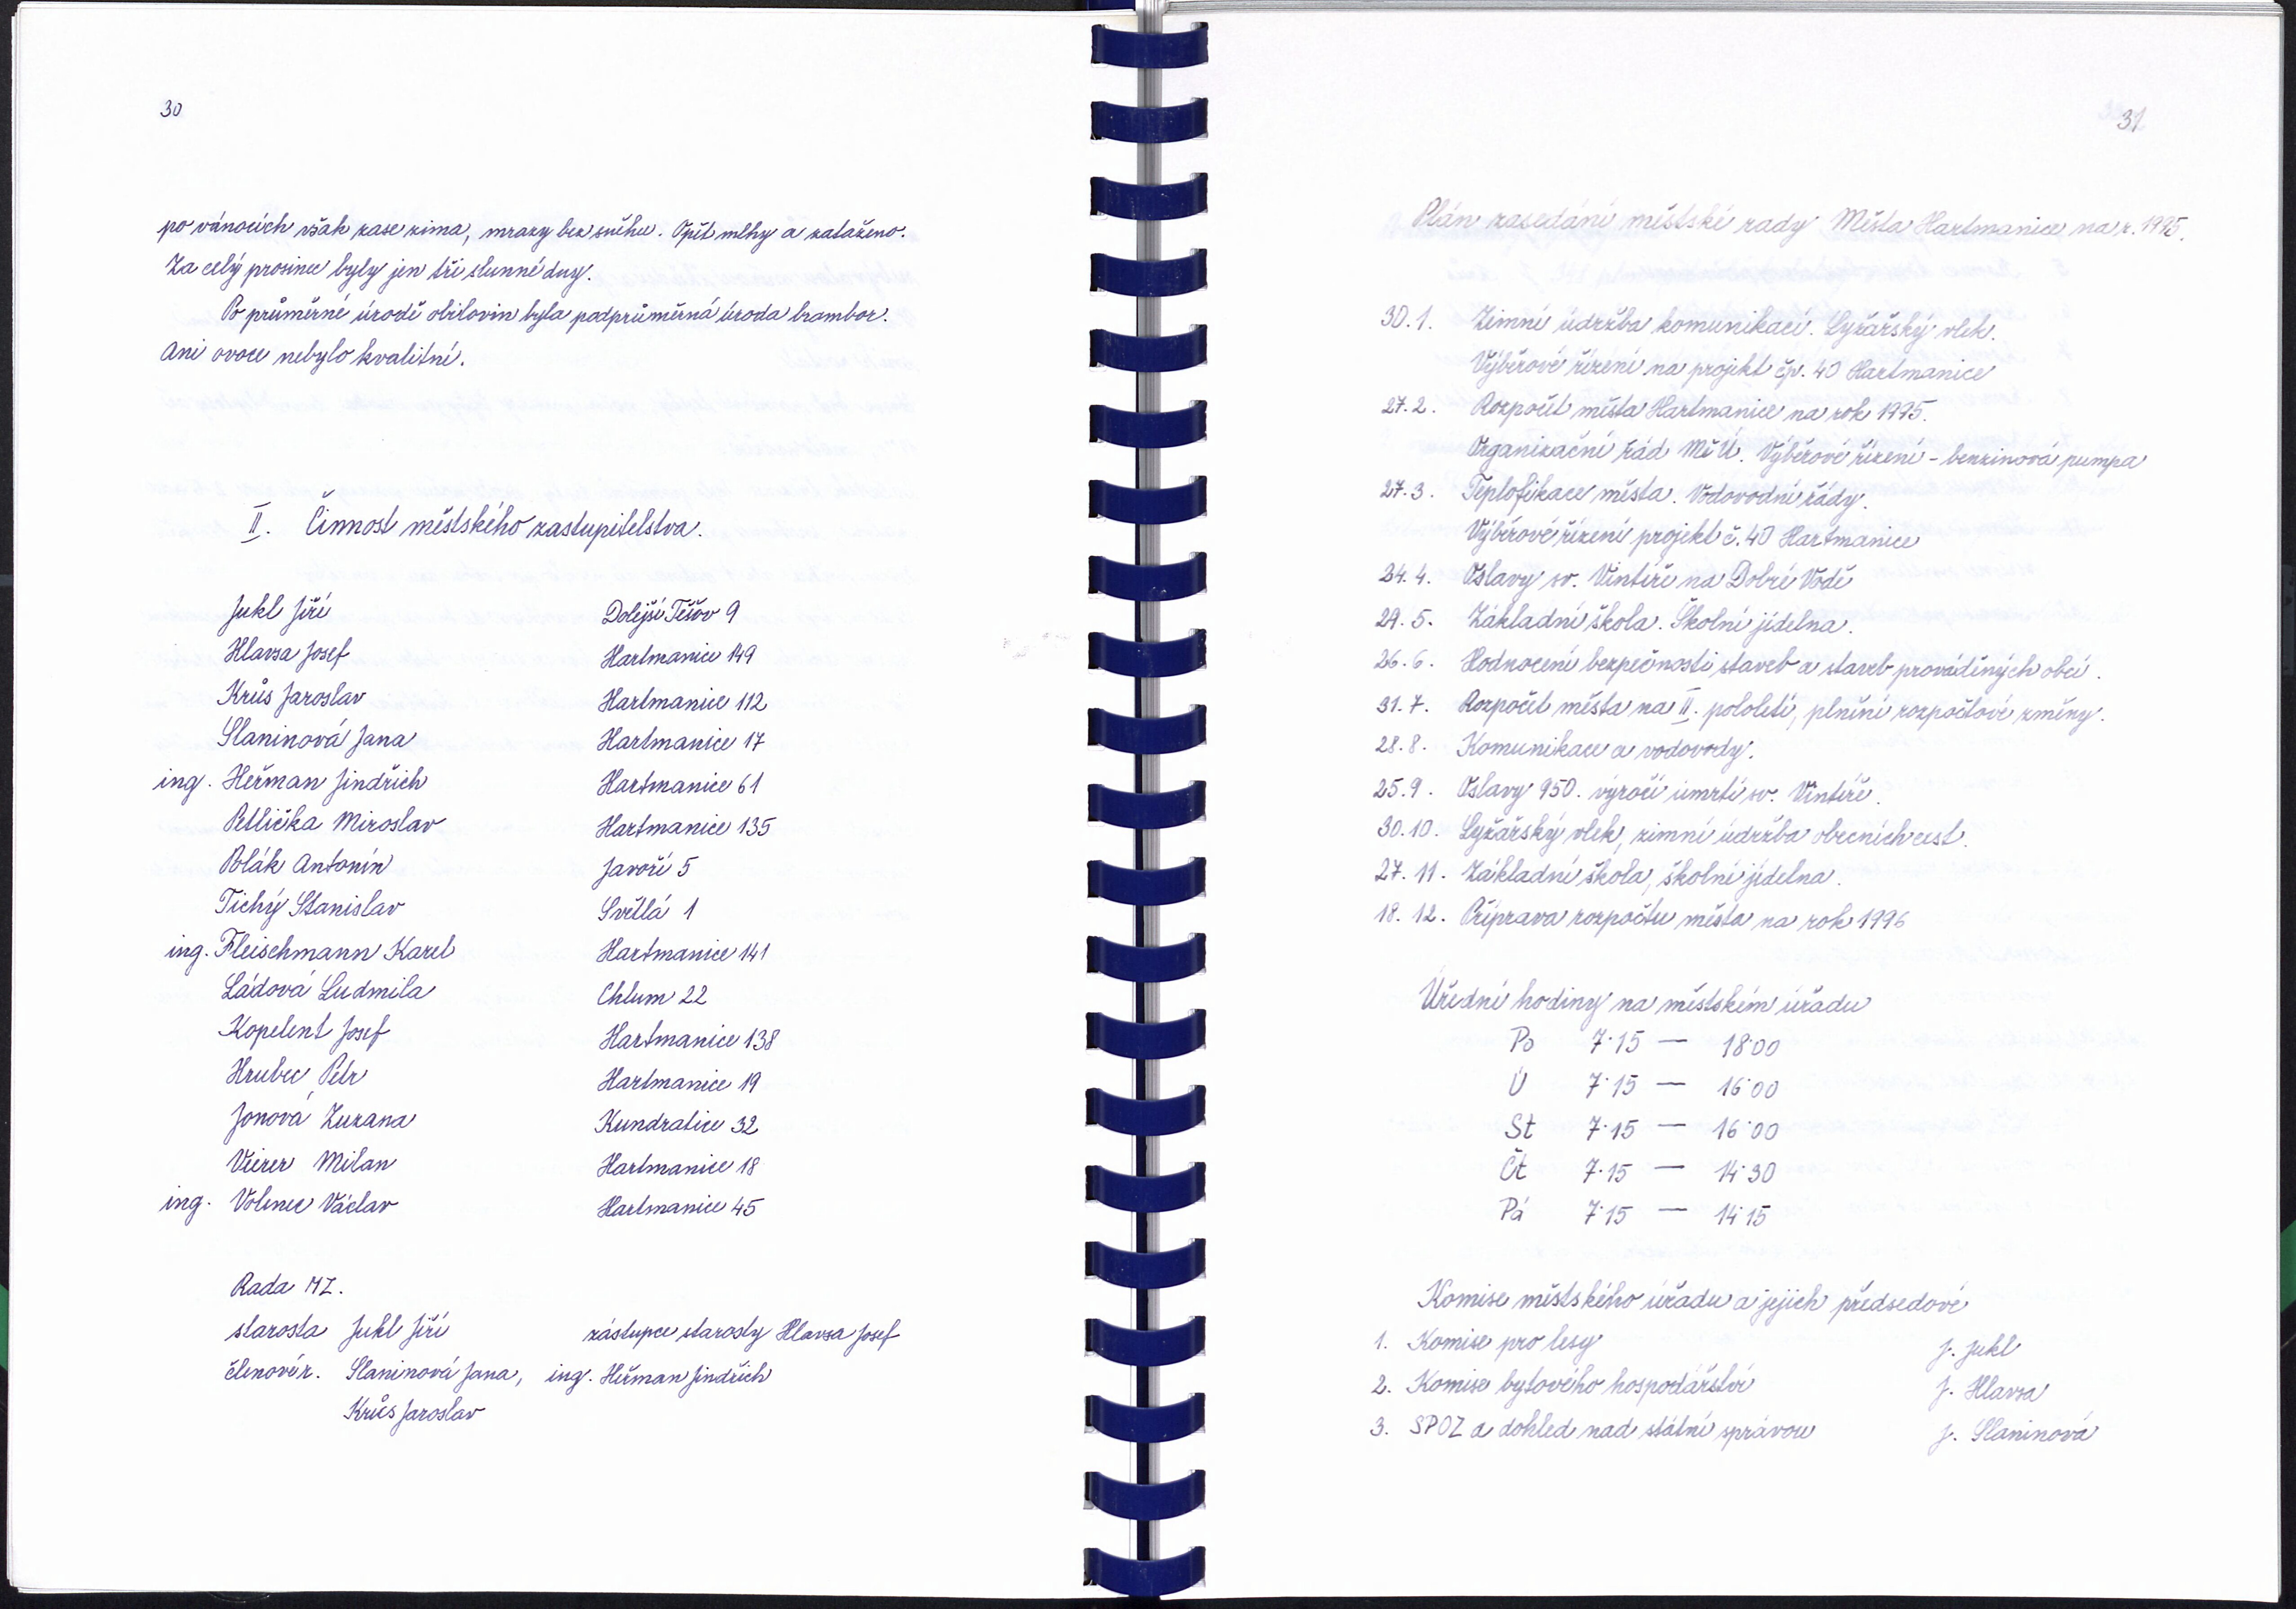 30
po vánocích však zase zima, mrazy bez sněhu. Opět mlhy a zataženo.
Za celý prosinec byly jen tři slunné dny.
Po průměrné úrodě obilovin byla podprůměrná úroda brambor.
Ani ovoce nebylo kvalitní.
II. Činnost městského zastupitelstva.
Jukl Jiří Dolejší Těšov 9
Hlavsa Josef Hartmanice 149
Krůs Jaroslav Hartmanice 112
Slaninová Jana Hartmanice 17
ing. Heřman Jindřich Hartmanice 61
Petlička Miroslav Hartmanice 135
Polák Antonín Javoří 5
Tichý Stanislav Světlá 1
ing. Fleischmann Karel Hartmanice 141
Ládová Ludmila Chlum 22
Kopelent Josef Hartmanice 138
Hrubec Petr Hartmanice 19
Jonová Zuzana Kundratice 32
Vierer Milan Hartmanice 18
ing. Volenec Václav Hartmanice 45
Rada MZ.
starosta Jukl Jiří zástupce starosty Hlavsa Josef
členové r. Slaninová Jana, ing. Heřman Jindřich
Krůs Jaroslav
31
Plán zasedání městské rady Města Hartmanice na r. 1995.
30.1. Zimní údržba komunikací. Lyžařský vlek.
Výběrové řízení na projekt čp. 40 Hartmanice
27.2. Rozpočet města Hartmanice na rok 1995.
Organizační řád MěÚ. Výběrové řízení - benzinová pumpa
27.3. Teplofikace města. Vodovodní řády.
Výběrové řízení projekt č. 40 Hartmanice
24.4. Oslavy sv. Vintíře na Dobré Vodě
29.5. Základní škola. Školní jídelna.
26.6. Hodnocení bezpečnosti staveb a staveb prováděných obcí.
31.7. Rozpočet města na II. pololetí, plnění rozpočtové změny.
28.8. Komunikace a vodovody.
25.9. Oslavy 950. výročí úmrtí sv. Vintíře.
30.10. Lyžařský vlek, zimní údržba obecních cest.
27.11. Základní škola, školní jídelna.
18.12. Příprava rozpočtu města na rok 1996
Úřední hodiny na městském úřadu
Po 7.15 — 18.00
Ú 7.15 — 16.00
St 7.15 — 16.00
Čt 7.15 — 14.30
Pá 7.15 — 14.15
Komise městského úřadu a jejich předsedové
1. Komise pro lesy J. Jukl
2. Komise bytového hospodářství J. Hlavsa
3. SPOZ a dohled nad státní správou J. Slaninová